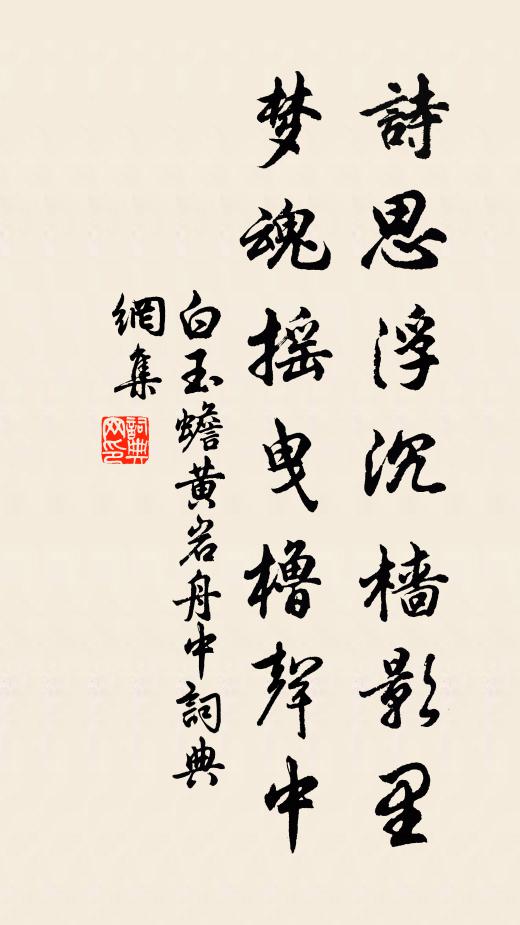 詩思浮沉檣影里
梦魂摇曳櫓聲中
白玉蟾黄岩舟中詞典
網集
詞典
网印